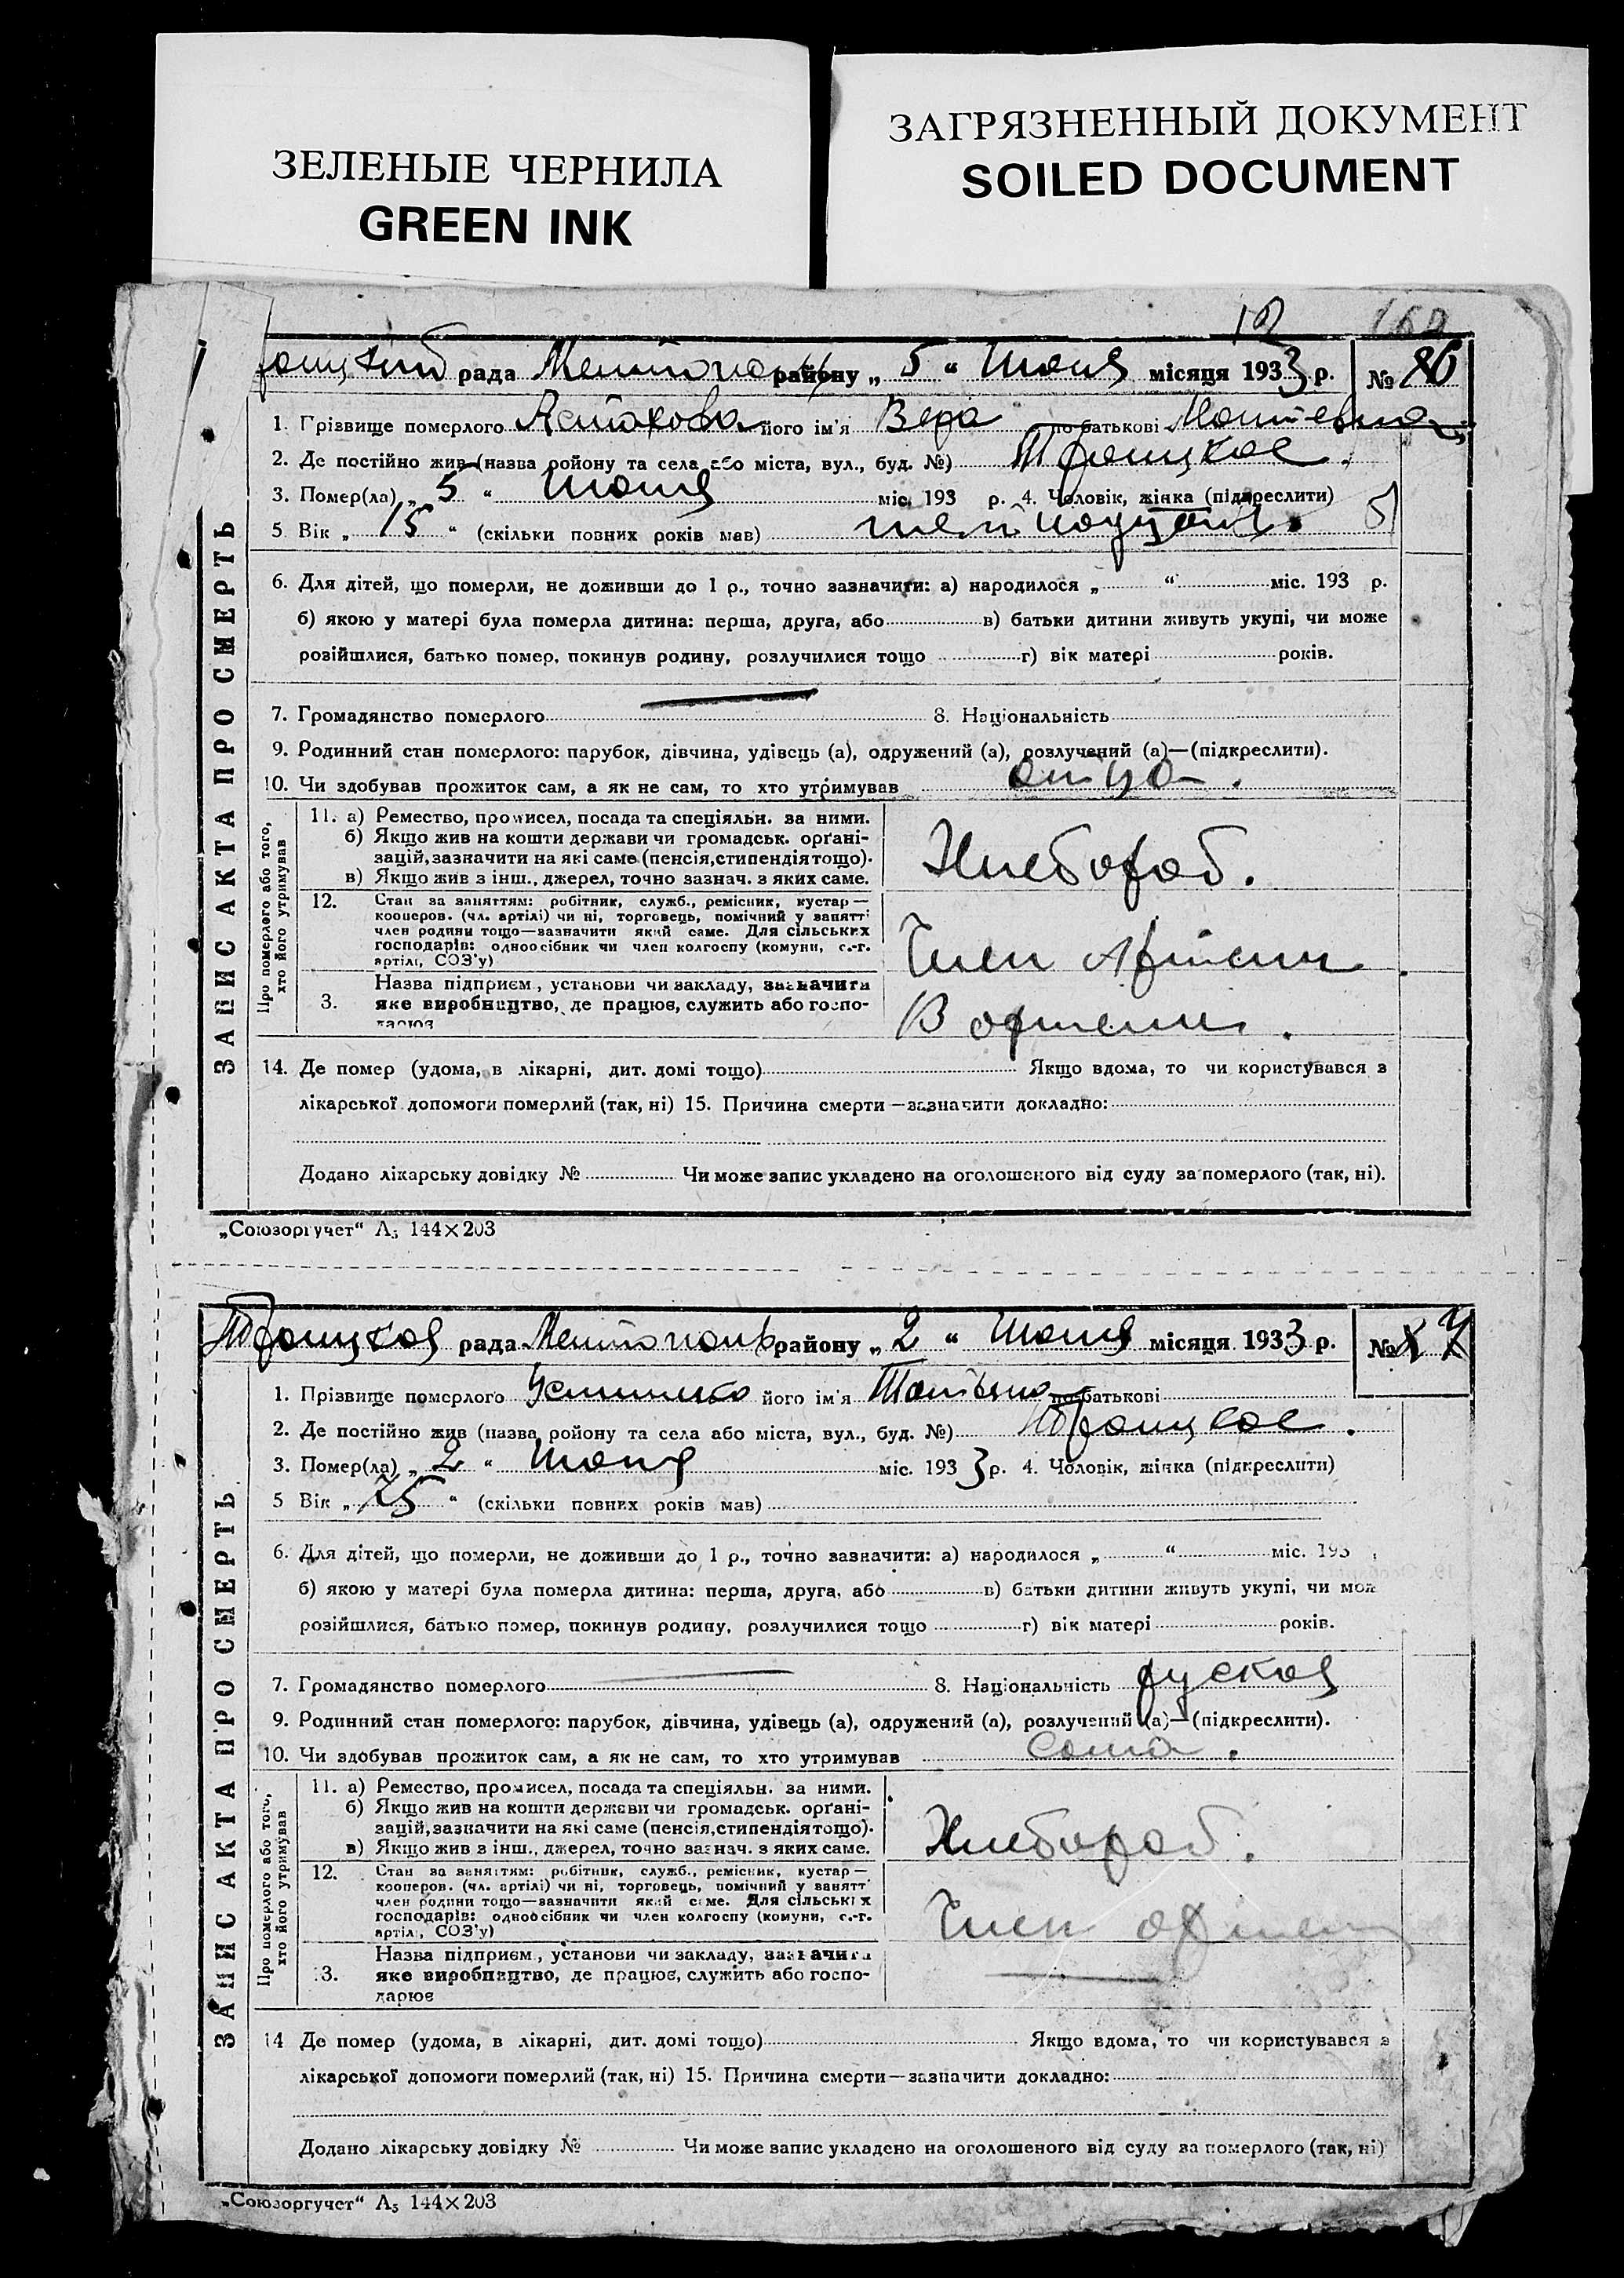 ЗЕЛЕНЫЕ ЧЕРНИЛА
GREEN INK
ЗАГРЯЗНЕННЫЙ ДОКУМЕНТ
SOILED DOCUMENT
12 160
рада району „ 5 “ Июня місяця 1933 р. № 86
1. Прізвище померлого Астахова його ім'я Вера по батькові
2. Де постійно жив (назва району та села або міста, вул., буд. №) Троицкое.
3. Помер(ла) „ 5 “ Июня міс. 193 р. 4. Чоловік, жінка (підкреслити)
5 Вік „ 15 “ (скільки повних років мав)
6. Для дітей, що померли, не доживши до 1 р., точно зазначити: а) народилося „ “ міс. 193 р.
б) якою у матері була померла дитина: перша, друга, або в) батьки дитини живуть укупі, чи може
розійшлися, батько помер, покинув родину, розлучилися тощо г) вік матері років.
7. Громадянство померлого 8. Національність
9. Родинний стан померлого: парубок, дівчина, удівець (а), одружений (а), розлучений (а)—(підкреслити).
10. Чи здобував прожиток сам, а як не сам, то хто утримував отца.
ЗАПИС АКТА ПРО СМЕРТЬ
Про померлого або того,
хто його утримував
11. а) Ремество, промисел, посада та спеціяльн. за ними.
б) Якщо жив на кошти держави чи громадськ. орґані-
зацій, зазначити на які саме (пенсія, стипендія тощо).
в) Якщо жив з інш., джерел, точно зазнач. з яких саме.
Хлебороб.
12. Стан за заняттям: робітник, служб., ремісник, кустар—
кооперов. (чл. артілі) чи ні, торговець, помічний у занятт
член родини тощо—зазначити який саме. Для сільських
господарів: одноосібник чи член колгоспу (комуни, с.-г.
артілі, СОЗ'у)
Член Артели.
3. Назва підприєм., установи чи закладу, зазначити
яке виробництво, де працює, служить або госпо-
дарює
В артели.
14. Де помер (удома, в лікарні, дит. домі тощо) Якщо вдома, то чи користувався з
лікарської допомоги померлий (так, ні) 15. Причина смерти—зазначити докладно:
Додано лікарську довідку № Чи може запис укладено на оголошеного від суду за померлого (так, ні).
„Союзоргучет“ А₅ 144×203
Троицкая рада району „ 2 “ Июня місяця 1933 р. №
1. Прізвище померлого його ім'я Татьяна по батькові
2. Де постійно жив (назва району та села або міста, вул., буд. №) Троицкое.
3. Помер(ла) „ 2 “ Июня міс. 1933 р. 4. Чоловік, жінка (підкреслити)
5 Вік „ 75 “ (скільки повних років мав)
6. Для дітей, що померли, не доживши до 1 р., точно зазначити: а) народилося „ “ міс. 193
б) якою у матері була померла дитина: перша, друга, або в) батьки дитини живуть укупі, чи мож
розійшлися, батько помер, покинув родину, розлучилися тощо г) вік матері років.
7. Громадянство померлого 8. Національність руская
9. Родинний стан померлого: парубок, дівчина, удівець (а), одружений (а), розлучений (а)—(підкреслити).
10. Чи здобував прожиток сам, а як не сам, то хто утримував сама.
ЗАПИС АКТА ПРО СМЕРТЬ
Про померлого або того,
хто його утримував
11. а) Ремество, промисел, посада та спеціяльн. за ними.
б) Якщо жив на кошти держави чи громадськ. орґані-
зацій, зазначити на які саме (пенсія, стипендія тощо).
в) Якщо жив з інш., джерел, точно зазнач. з яких саме.
Хлебороб.
12. Стан за заняттям: робітник, служб., ремісник, кустар—
кооперов. (чл. артілі) чи ні, торговець, помічний у занятт
член родини тощо—зазначити який саме. Для сільських
господарів: одноосібник чи член колгоспу (комуни, с.-г.
артілі, СОЗ'у)
Член артели
3. Назва підприєм., установи чи закладу, зазначити
яке виробництво, де працює, служить або госпо-
дарює
14 Де помер (удома, в лікарні, дит. домі тощо) Якщо вдома, то чи користувався з
лікарської допомоги померлий (так, ні) 15. Причина смерти—зазначити докладно:
Додано лікарську довідку № Чи може запис укладено на оголошеного від суду за померлого (так, ні)
„Союзоргучет“ А₅ 144×203